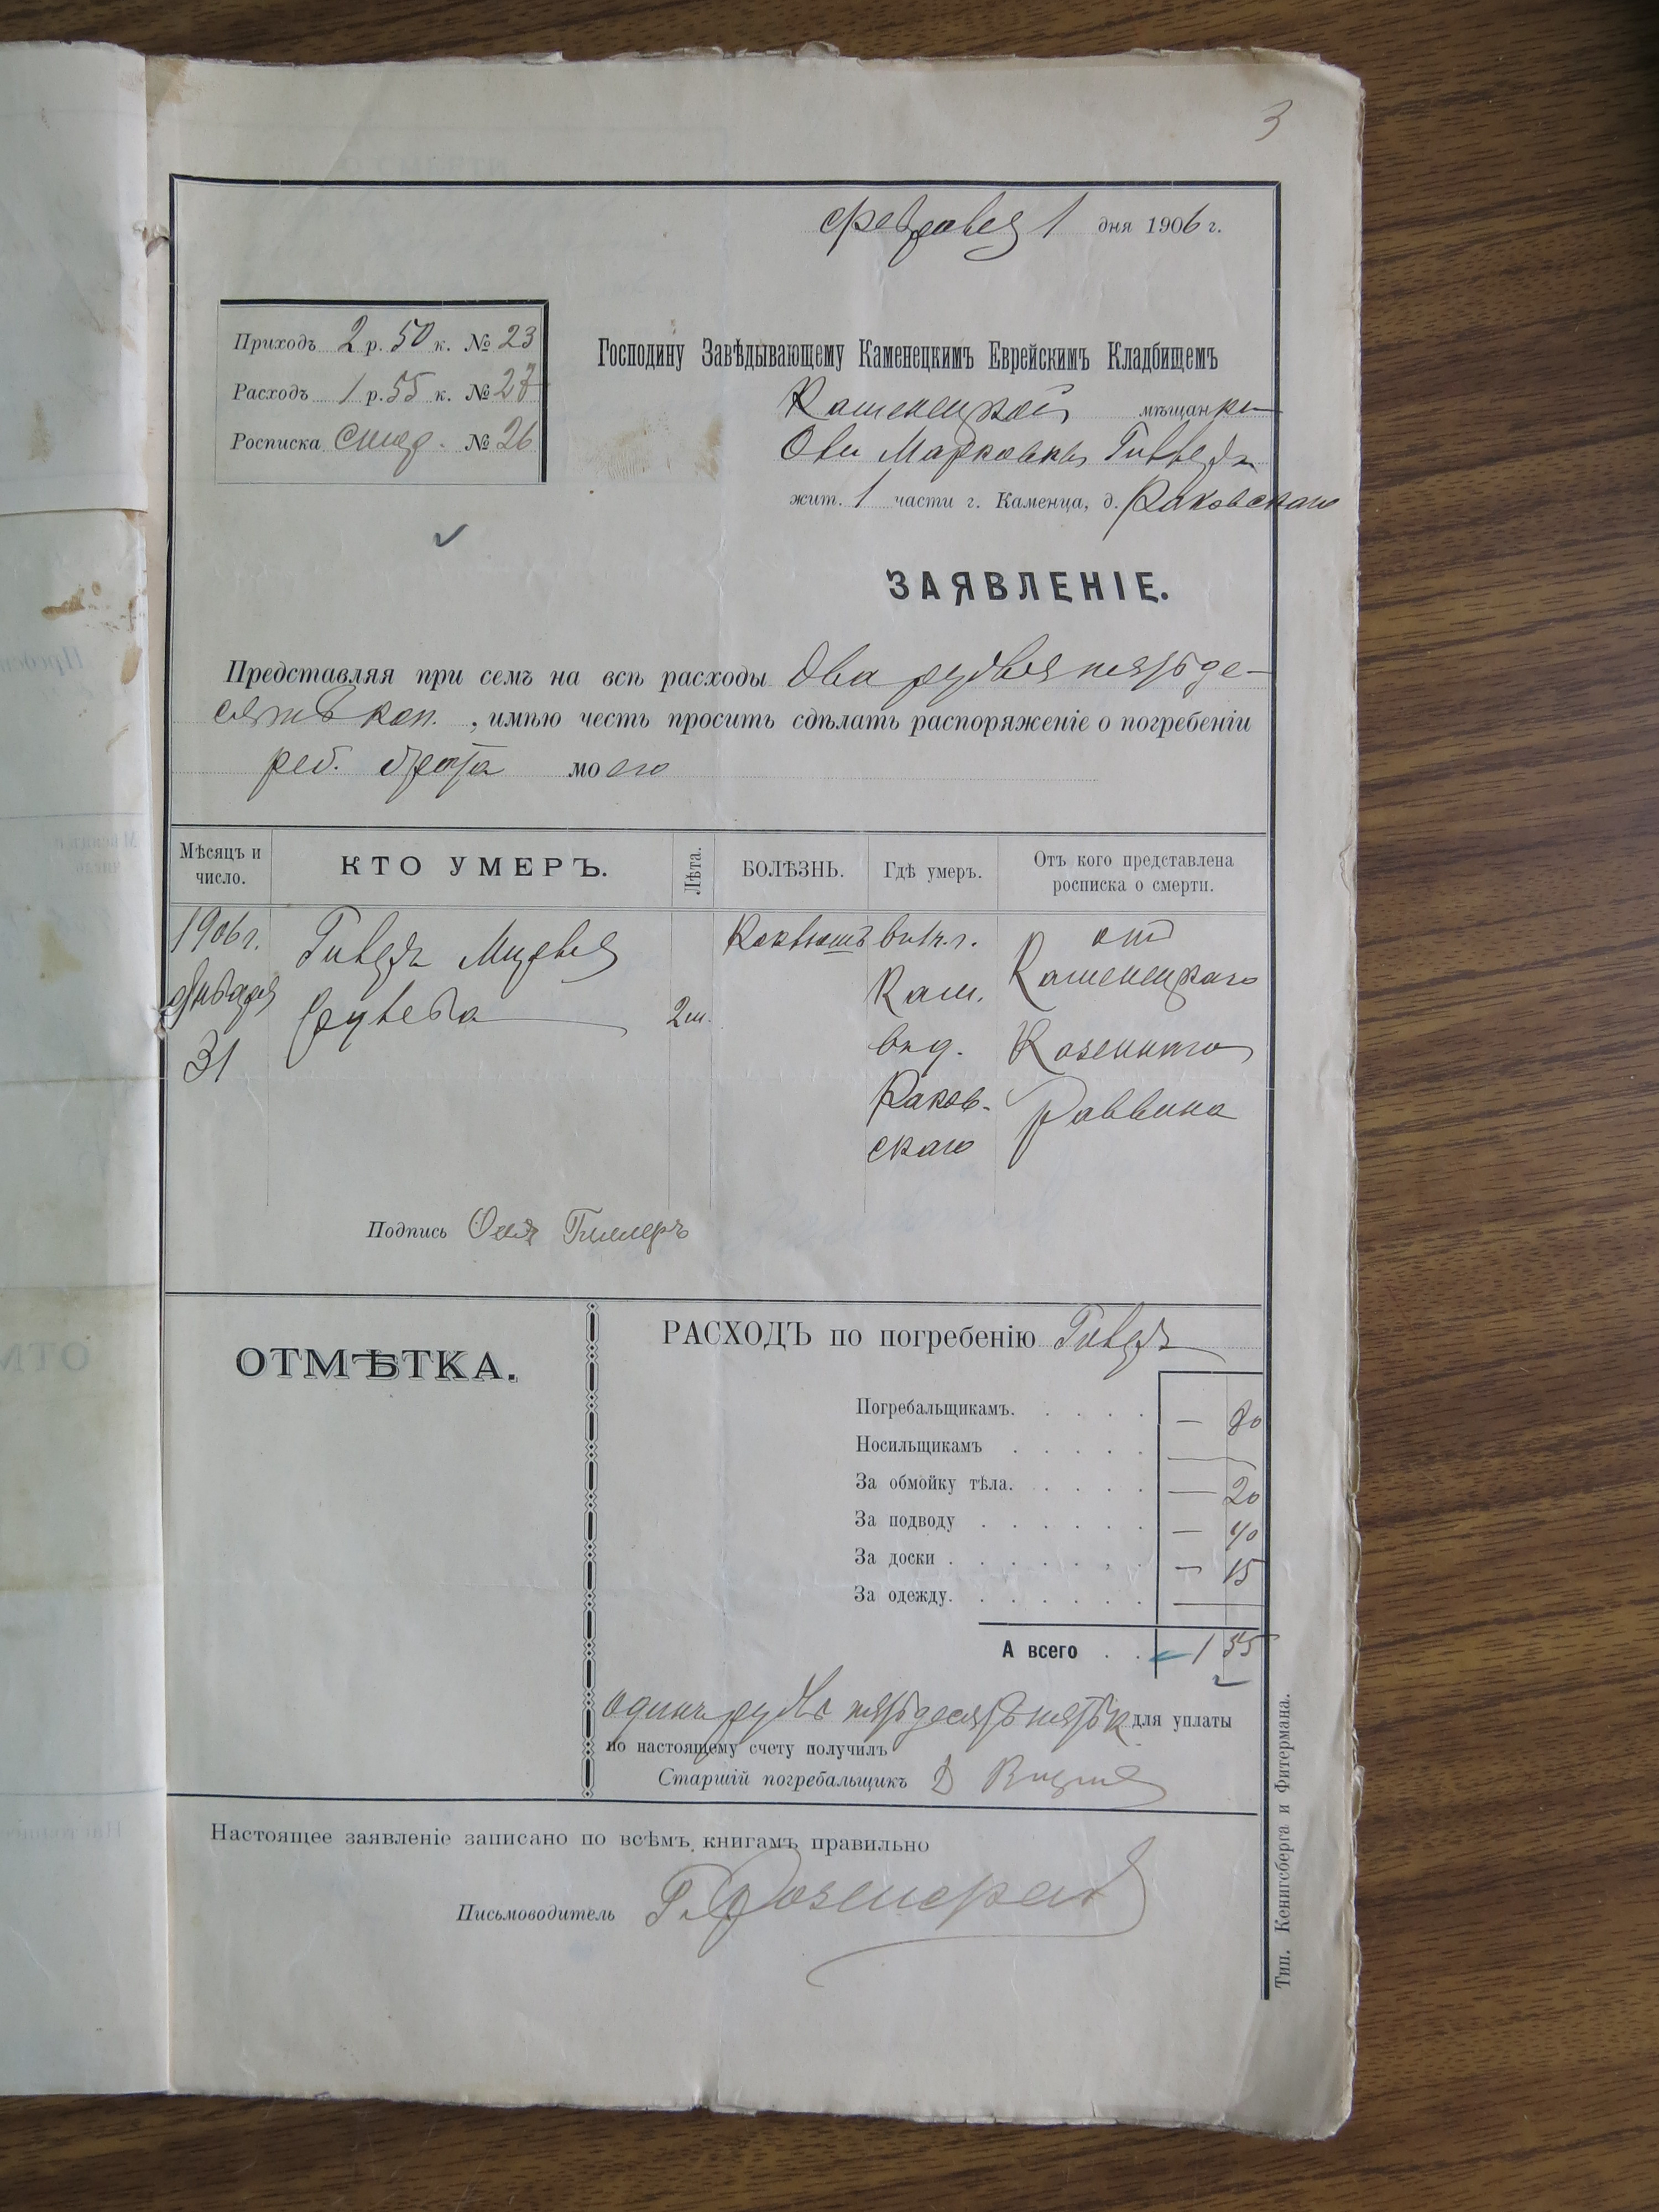 3
февраля 1 дня 1906 г.
Приходъ 2 р. 50 к. № 23
Расходъ 1 р. 55 к. № 27
Росписка № 26
Господину Завѣдывающему Каменецкимъ Еврейскимъ Кладбищемъ
Каменецкой мѣщанки
Марковны
жит. 1 части г. Каменца, д. Раковскаго
ЗАЯВЛЕНІЕ.
Представляя при семъ на всѣ расходы два рубля пятьде-
сятъ коп. , имѣю честь просить сдѣлать распоряженіе о погребеніи
реб. брата моего
Мѣсяцъ и число.
КТО УМЕРЪ.
Лѣта.
БОЛѢЗНЬ.
Гдѣ умеръ.
Отъ кого представлена росписка о смерти.
1906 г.
Января
31
2 м.
Коклюшъ
Кам.
в д.
Раков-
скаго
от
Каменецкаго
Казеннаго
Раввина
Подпись Гиллеръ
ОТМѢТКА.
РАСХОДЪ по погребенію
Погребальщикамъ. — 80
Носильщикамъ —
За обмойку тѣла. — 20
За подводу — 40
За доски — 15
За одежду. —
А всего 1 55
одинъ рубль пятьдесятъ пять к для уплаты
по настоящему счету получилъ
Старшій погребальщикъ
Настоящее заявленіе записано по всѣмъ книгамъ правильно
Письмоводитель
Тип. Кенигсберга и Фитермана.